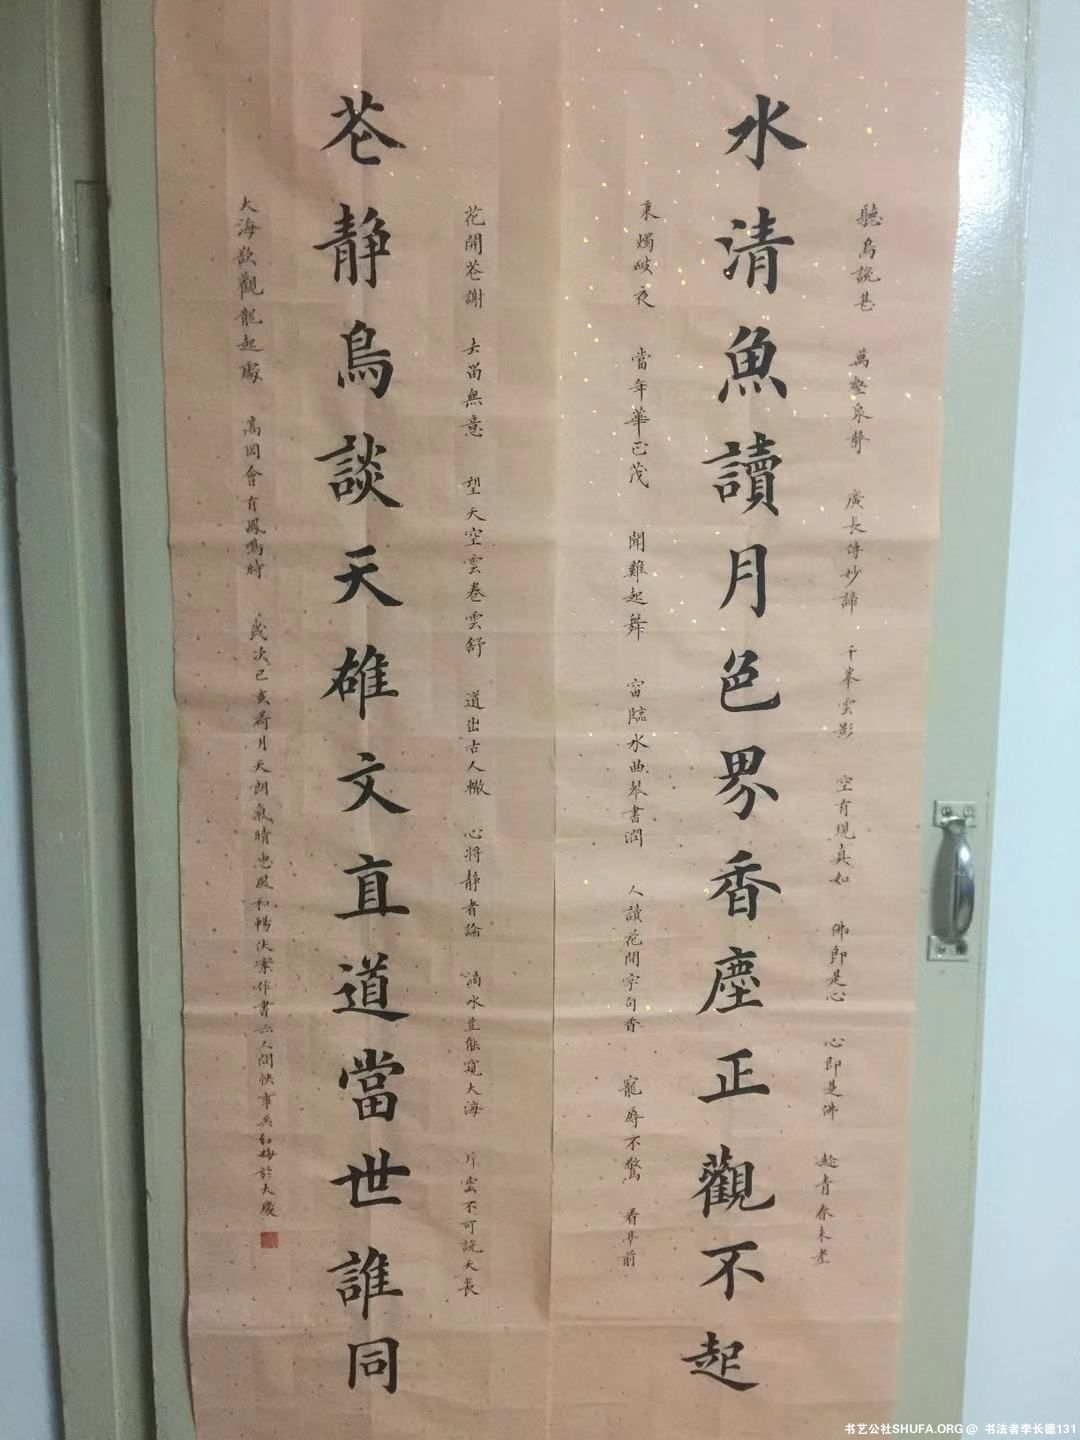 水清魚讀月色界香塵正觀不起
苍静鳥談天雄文直道當世誰同
聽鳥説甚 萬壑泉聲 廣長傳妙諦 千峯雲影 空有現真如 佛即是心 心即是佛 趁青春未老
秉燭破夜 當年華正茂 聞雞起舞 窗臨水曲琴書潤 人讀花間字句香 寵辱不驚 看亭前
花開苍謝 去留無意 望天空雲卷雲舒 道出古人轍 心將静者論 滴水豈能窺大海 片雲不可説天長
大海欲觀龍起處 高岡會有鳳鳴時 歲次己亥荷月天朗氣晴惠風和暢伏案作書亦人間快事 紅梅於大慶
书艺公社SHUFA.ORG @ 书法者李长德131